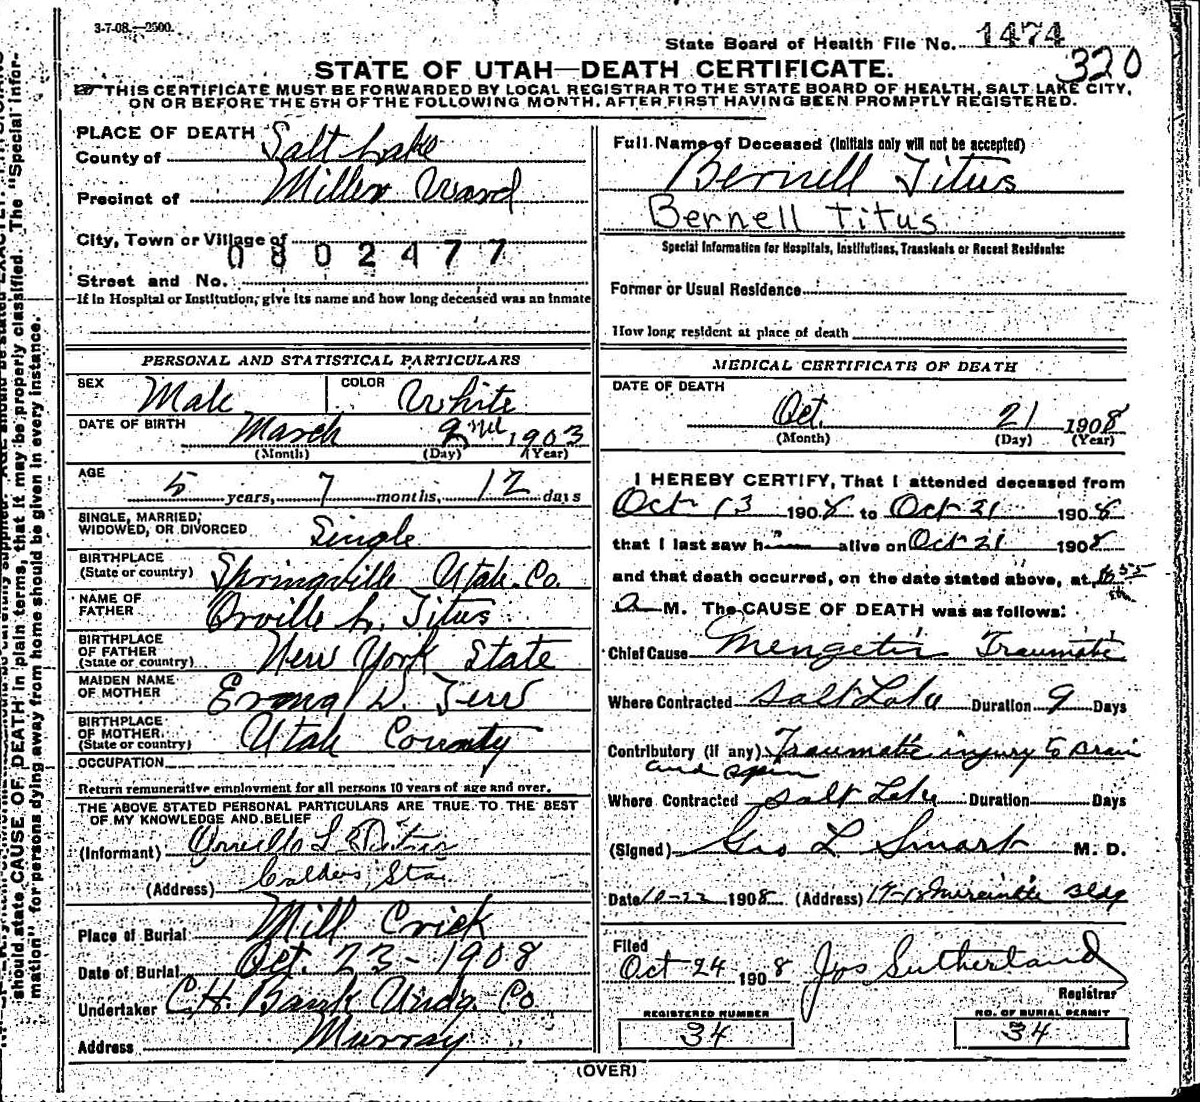 3-7-08.—2500.
State Board of Health File No. 1474
320
STATE OF UTAH—DEATH CERTIFICATE.
THIS CERTIFICATE MUST BE FORWARDED BY LOCAL REGISTRAR TO THE STATE BOARD OF HEALTH, SALT LAKE CITY,
ON OR BEFORE THE 5TH OF THE FOLLOWING MONTH, AFTER FIRST HAVING BEEN PROMPTLY REGISTERED.
PLACE OF DEATH
County of Salt Lake
Precinct of Miller Ward
City, Town or Village of
0802477
Street and No.
If in Hospital or Institution, give its name and how long deceased was an inmate
Full Name of Deceased (Initials only will not be accepted)
Bernell Titus
Bernell Titus
Special Information for Hospitals, Institutions, Transients or Recent Residents:
Former or Usual Residence
How long resident at place of death
PERSONAL AND STATISTICAL PARTICULARS
SEX Male COLOR White
DATE OF BIRTH March 9 1903
(Month) (Day) (Year)
AGE 5 years, 7 months, 12 days
SINGLE, MARRIED,
WIDOWED, OR DIVORCED Single
BIRTHPLACE
(State or country) Springville Utah. Co.
NAME OF
FATHER Orville L. Titus
BIRTHPLACE
OF FATHER
(State or country) New York State
MAIDEN NAME
OF MOTHER Emma D. Tew
BIRTHPLACE
OF MOTHER
(State or country) Utah County
OCCUPATION
Return remunerative employment for all persons 10 years of age and over.
THE ABOVE STATED PERSONAL PARTICULARS ARE TRUE TO THE BEST
OF MY KNOWLEDGE AND BELIEF
(Informant) Orville L Titus
(Address) Calders Sta.
Place of Burial Mill Crick
Date of Burial Oct. 23-1908
Undertaker C.H. Bank Undg. Co
Address Murray
MEDICAL CERTIFICATE OF DEATH
DATE OF DEATH
Oct. 21 1908
(Month) (Day) (Year)
I HEREBY CERTIFY, That I attended deceased from
Oct 13 1908 to Oct 21 1908
that I last saw h alive on Oct 21 1908
and that death occurred, on the date stated above, at
a M. The CAUSE OF DEATH was as follows:
Chief Cause Mengetis Traumatic
Where Contracted Salt Lake Duration 9 Days
Contributory (if any) Traumatic injury to brain
and spin
Where Contracted Salt Lake Duration Days
(Signed) Geo L Smart M. D.
Date 10-22 1908 (Address) Bldg
Filed
Oct 24 1908 Jos Sutherland
Registrar
REGISTERED NUMBER
34
NO. OF BURIAL PERMIT
34
(OVER)
should state CAUSE OF DEATH in plain terms, that it may be properly classified. The "Special infor-
mation" for persons dying away from home should be given in every instance.